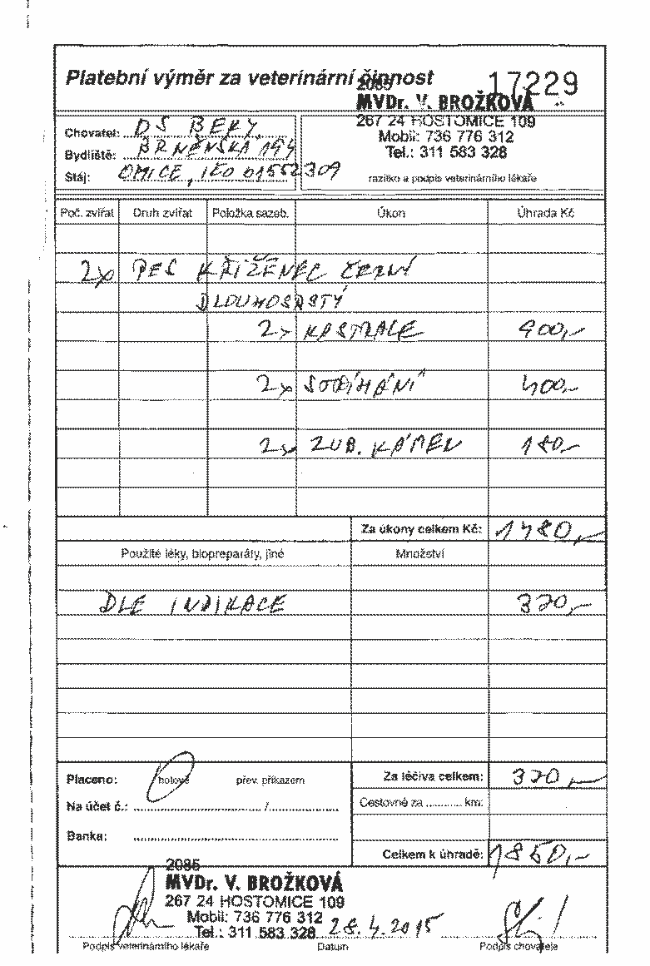 Platební výměr za veterinární činnost 17229
2085
MVDr. V. BROŽKOVÁ
267 24 HOSTOMICE 109
Mobil: 736 776 312
Tel.: 311 583 328
razítko a podpis veterinárního lékaře
Chovatel: DS BERY,
Bydliště: BRNĚNSKÁ 194
Stáj: OMICE, IČO 01552309
Poč. zvířat Druh zvířat Položka sazeb. Úkon Úhrada Kč
2x PES KŘÍŽENEC ČERNÝ
DLOUHOSRSTÝ
2x KASTRACE 900,-
2x STŘÍHÁNÍ 400,-
2x ZUB. KÁMEN 180,-
Za úkony celkem Kč: 1480,-
Použité léky, biopreparáty, jiné Množství
DLE INDIKACE 370,-
Placeno: hotově přev. příkazem
Za léčiva celkem: 370,-
Na účet č.: ........ / ........
Cestovné za ........ km:
Banka: ........
Celkem k úhradě: 1850,-
2085
MVDr. V. BROŽKOVÁ
267 24 HOSTOMICE 109
Mobil: 736 776 312
Tel.: 311 583 328
28.4.2015
Podpis veterinárního lékaře Datum Podpis chovatele